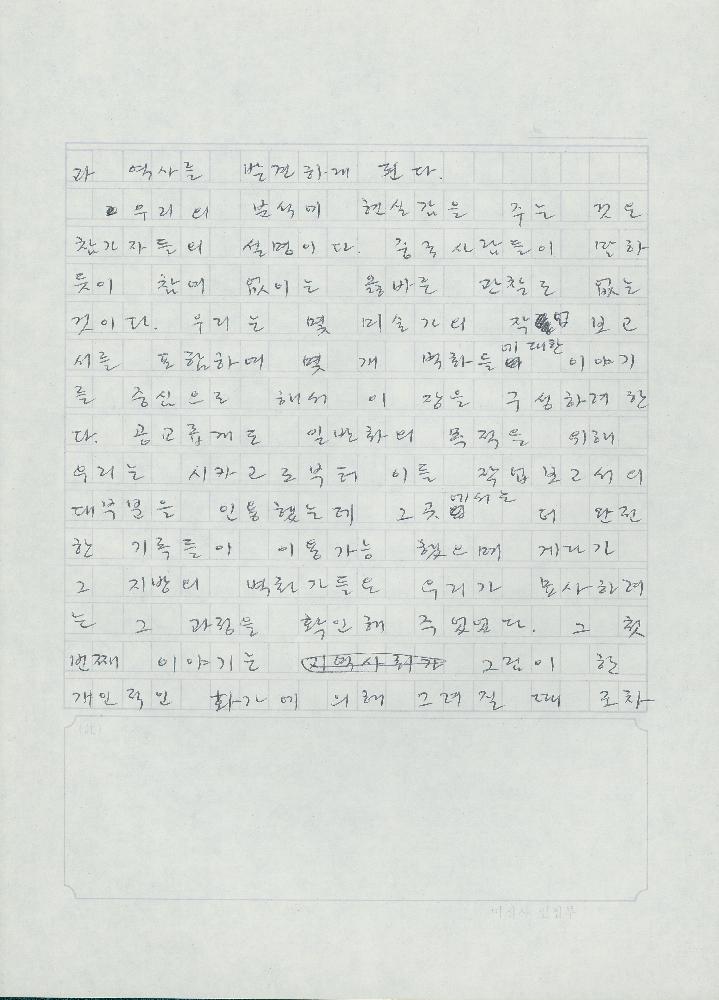 과 역사를 발견하게 된다.
우리의 분석에 현실감을 주는 것은
참가자들의 설명이다. 중국사람들이 말하
듯이 참여 없이는 올바른 관찰도 없는
것이다. 우리는 몇 미술가의 작업 보고
서를 포함하여 몇 개 벽화들에 대한 이야기
를 중심으로 해서 이 장을 구성하려 한
다. 공교롭게도 일반화의 목적을 위해
우리는 시카고로부터 이들 작업보고서의
대부분을 인용했는데 그곳에서는 더 완전
한 기록들이 이용가능 했으며 게다가
그 지방의 벽화가들은 우리가 묘사하려
는 그 과정을 확인해 주었었다. 그 첫
번째 이야기는 지역사회가 그림이 한
개인적인 화가에 의해 그려질 때 조차
(註)